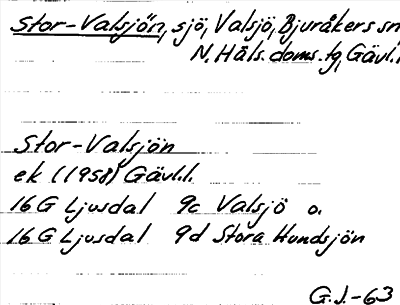 Stor-Valsjön, sjö, Valsjö, Bjuråkers sn
N. Häls. doms. tg, Gävl.l
Stor-Valsjön
ek (1958) Gävl.l.
16 G Ljusdal 9c Valsjö o.
16 G Ljusdal 9d Stora Hundsjön
G.J.-63